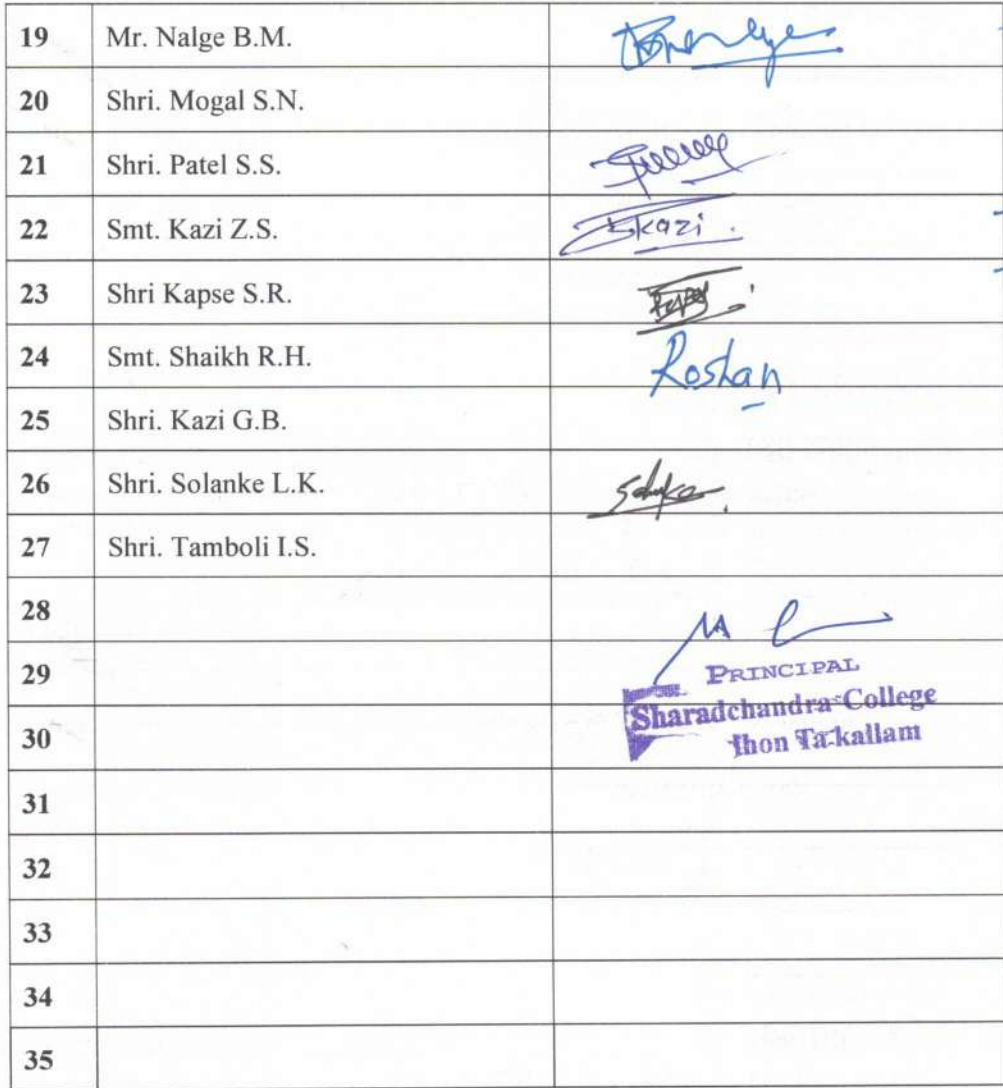 19 Mr. Nalge B.M.
20 Shri. Mogal S.N.
21 Shri. Patel S.S.
22 Smt. Kazi Z.S. Kazi.
23 Shri Kapse S.R.
24 Smt. Shaikh R.H. Roshan
25 Shri. Kazi G.B.
26 Shri. Solanke L.K.
27 Shri. Tamboli I.S.
28
29 PRINCIPAL
Sharadchandra College
30
Ta-kallam
31
32
33
34
35